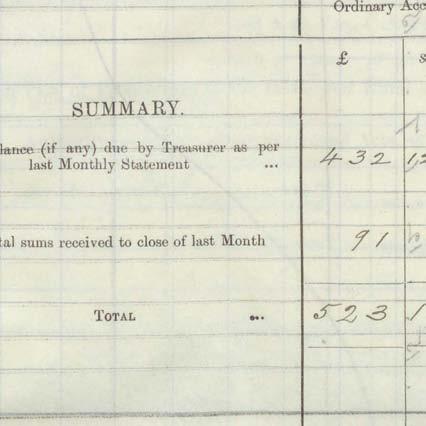 Ordinary Acc
£ s
SUMMARY.
lance (if any) due by Treasurer as per
last Monthly Statement ... 432 12
tal sums received to close of last Month 91
TOTAL ... 523 1